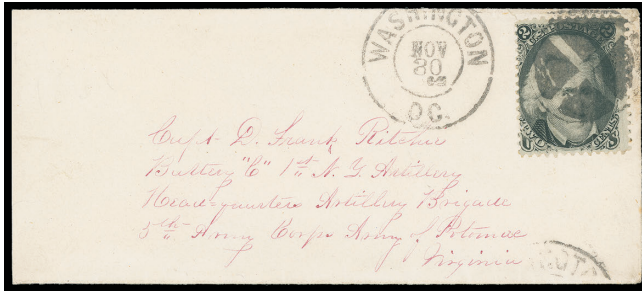 WASHINGTON
NOV
30
D.C.
2 U.S. POSTAGE 2
TWO CENTS
Capt. D. Frank Ritchie
Battery "C" 1st N. Y. Artillery
Head-quarters Artillery Brigade
5th Army Corps Army of Potomac
Virginia